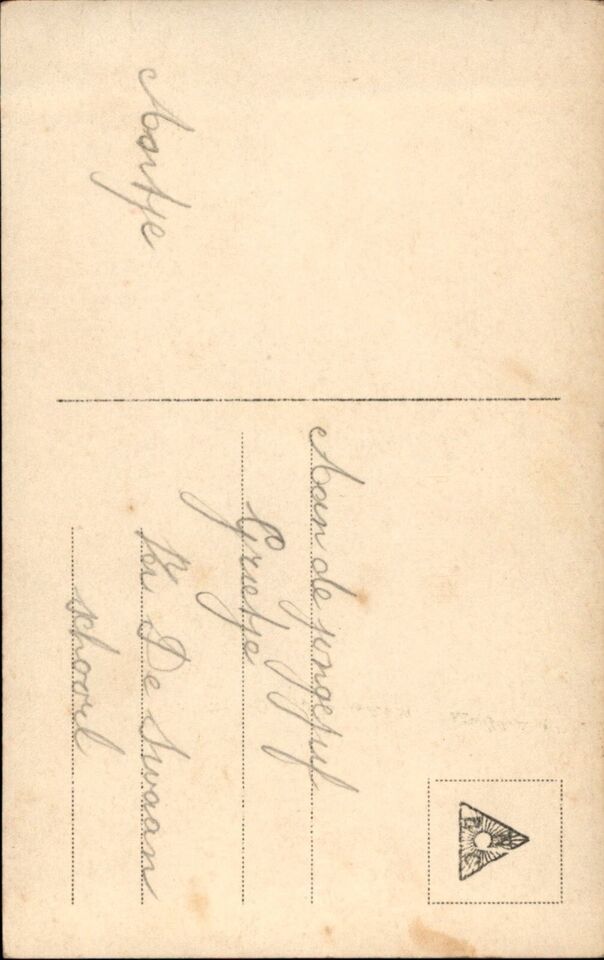 Aartje
Aan de jongejuf
Grietje
De Swaan
schoorl